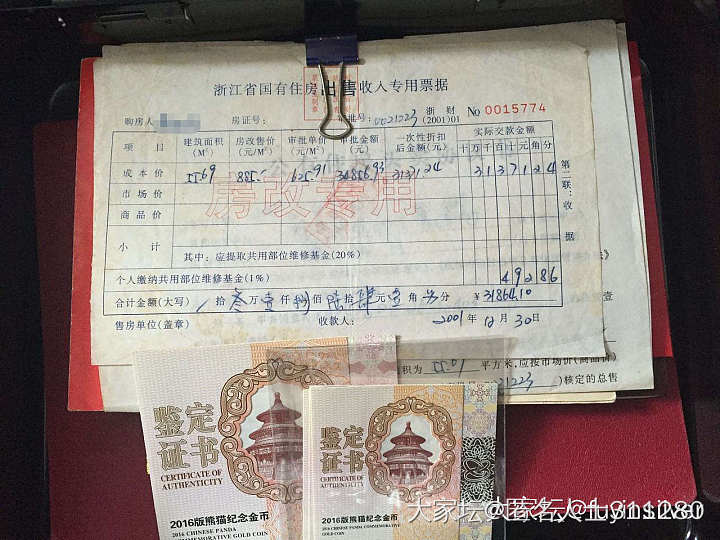 浙江省国有住房出售收入专用票据
购房人 房证号: 审批号: 0021223 浙财(2001)01 No 0015774
项目 建筑面积(M²) 房改售价(元/M²) 审批单价(元/M²) 审批金额(元) 一次性折扣后金额(元) 实际交款金额
十万千百十元角分
成本价 55.69 885.- 625.91 34856.93 31371.24 3137124
市场价
房改专用
商品价
小计 其中: 应提取共用部位维修基金(20%)
个人缴纳共用部位维修基金(1%) 49286
合计金额(大写) 拾叁万壹仟捌佰陆拾肆元壹角 分 ¥31864.10
售房单位(盖章) 收款人: 2001年12月30日
第二联:收据
积为 平方米,应按市场价(商品价)
)核定的总售
鉴定证书
CERTIFICATE OF AUTHENTICITY
2016版熊猫纪念金币
2016 CHINESE PANDA
COMMEMORATIVE GOLD COIN
鉴定证书
CERTIFICATE OF AUTHENTICITY
2016版熊猫纪念金币
2016 CHINESE PANDA COMMEMORATIVE
GOLD COIN